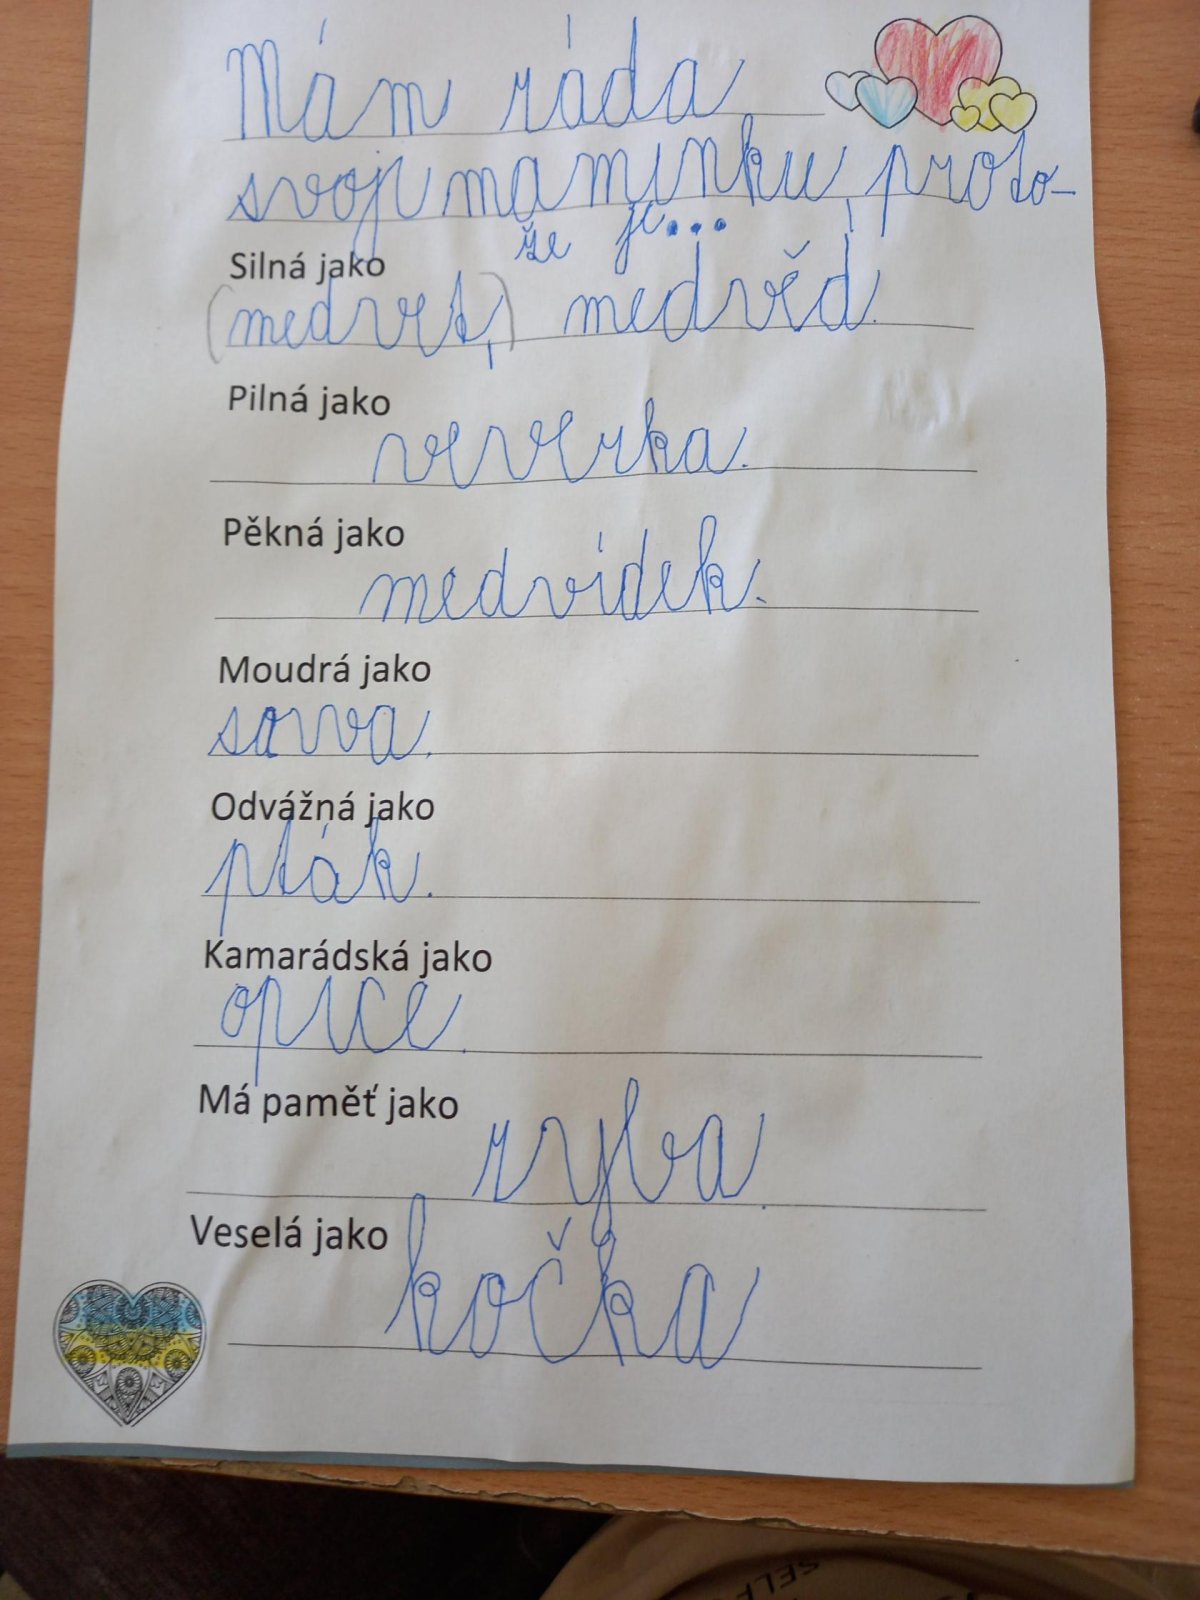 Mám ráda
svoji maminku proto-
že je...
Silná jako
(medvet,) medvěd.
Pilná jako
veverka.
Pěkná jako
medvídek.
Moudrá jako
sova.
Odvážná jako
pták.
Kamarádská jako
opice.
Má paměť jako
ryba.
Veselá jako
kočka
SELF